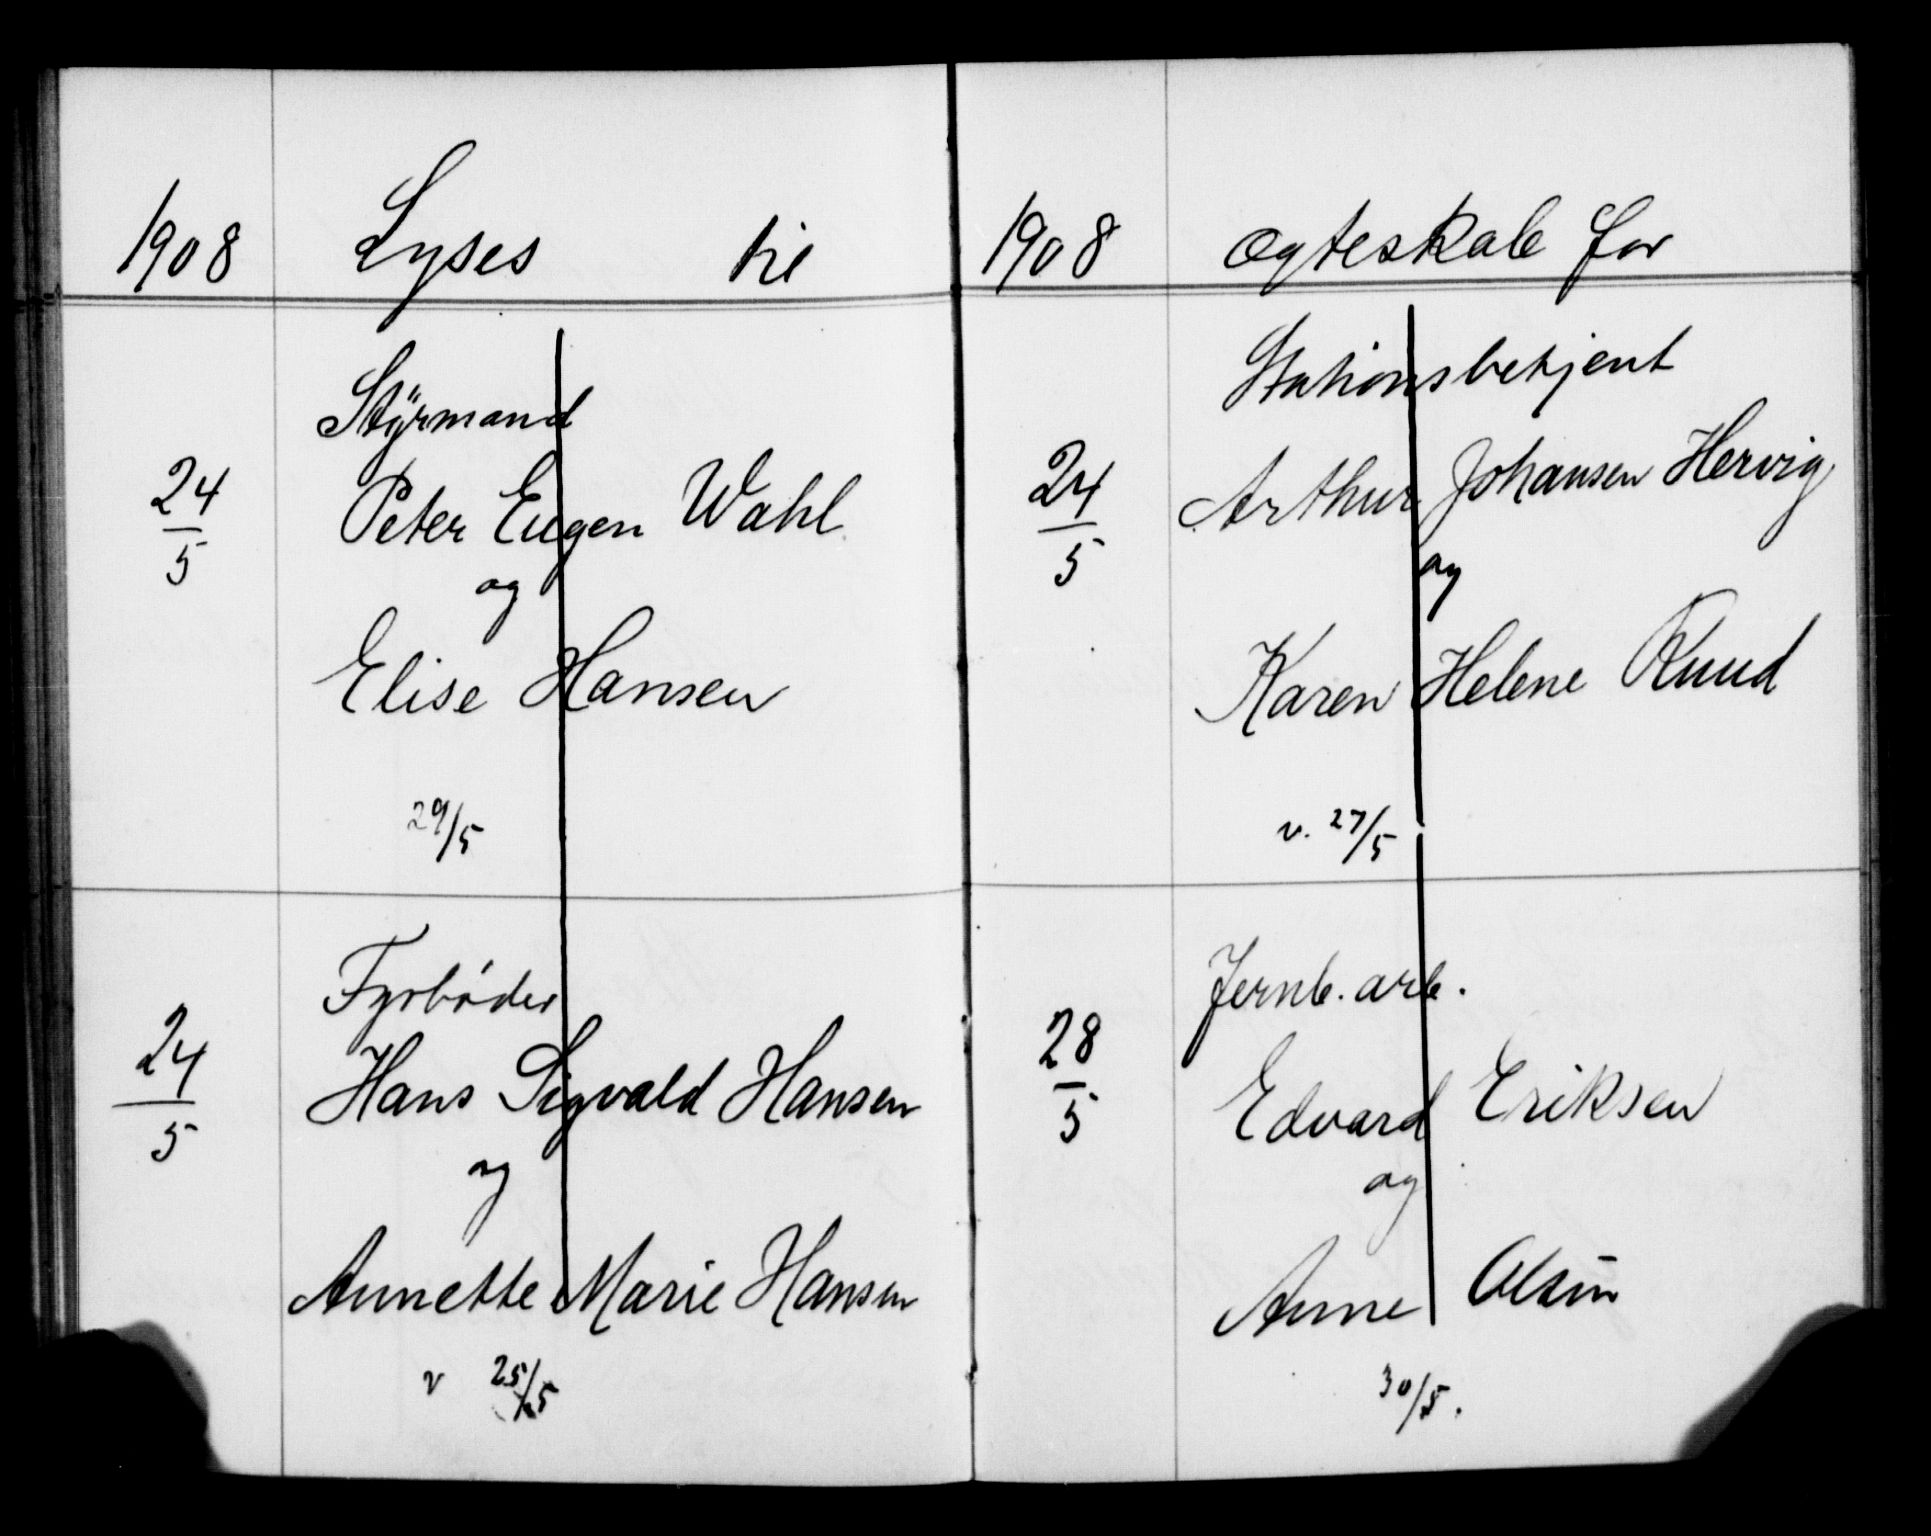 1908 Lyses til
Styrmand
24/5 Peter Eugen Wahl
og
Elise Hansen
29/5
Fyrbøder
24/5 Hans Sigvald Hansen
og
Annette Marie Hansen
v 25/5
1908 ægteskab for
Stationsbetjent
24/5 Arthur Johansen Hervig
og
Karen Helene Ruud
v. 27/5
Jernb. arb.
28/5 Edvard Eriksen
og
Anne Olsen
30/5.